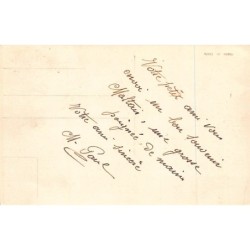 Votre petit ami vous
envoi un bon souvenir
une grosse
poignée de main
Votre ami sincère
M.